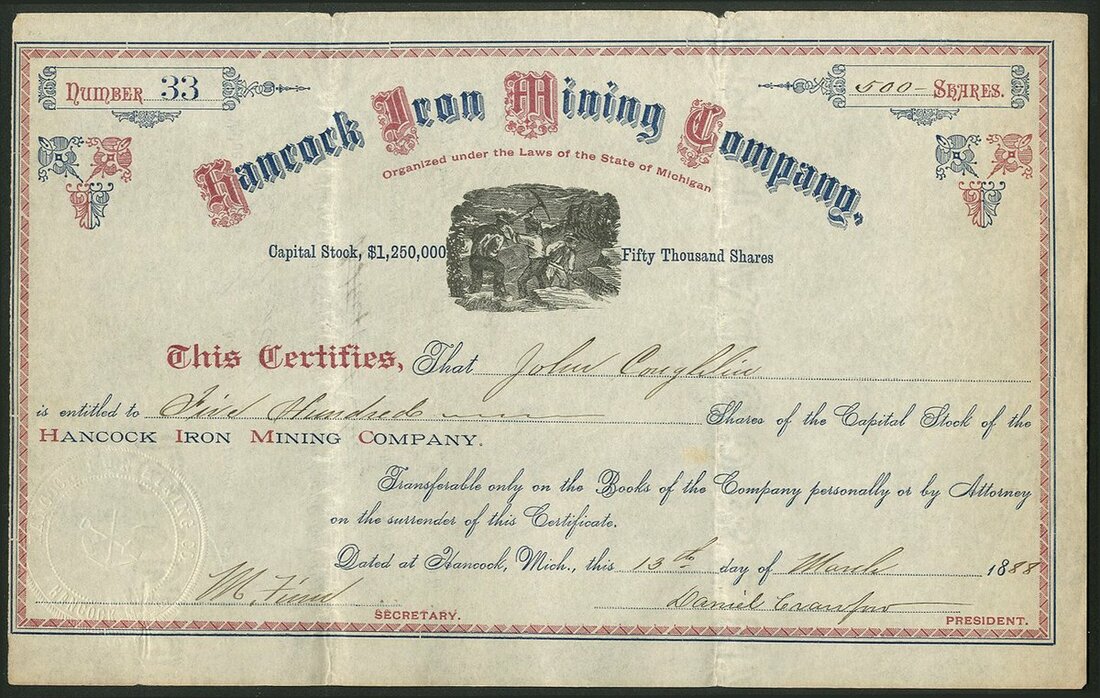 NUMBER 33
500- SHARES.
Hancock Iron Mining Company,
Organized under the Laws of the State of Michigan
Capital Stock, $1,250,000 Fifty Thousand Shares
This Certifies, That John Coughlin
is entitled to Five Hundred Shares of the Capital Stock of the
HANCOCK IRON MINING COMPANY.
Transferable only on the Books of the Company personally or by Attorney
on the surrender of this Certificate.
Dated at Hancock, Mich., this 13th day of March 1888
M. Daniel
SECRETARY.
PRESIDENT.